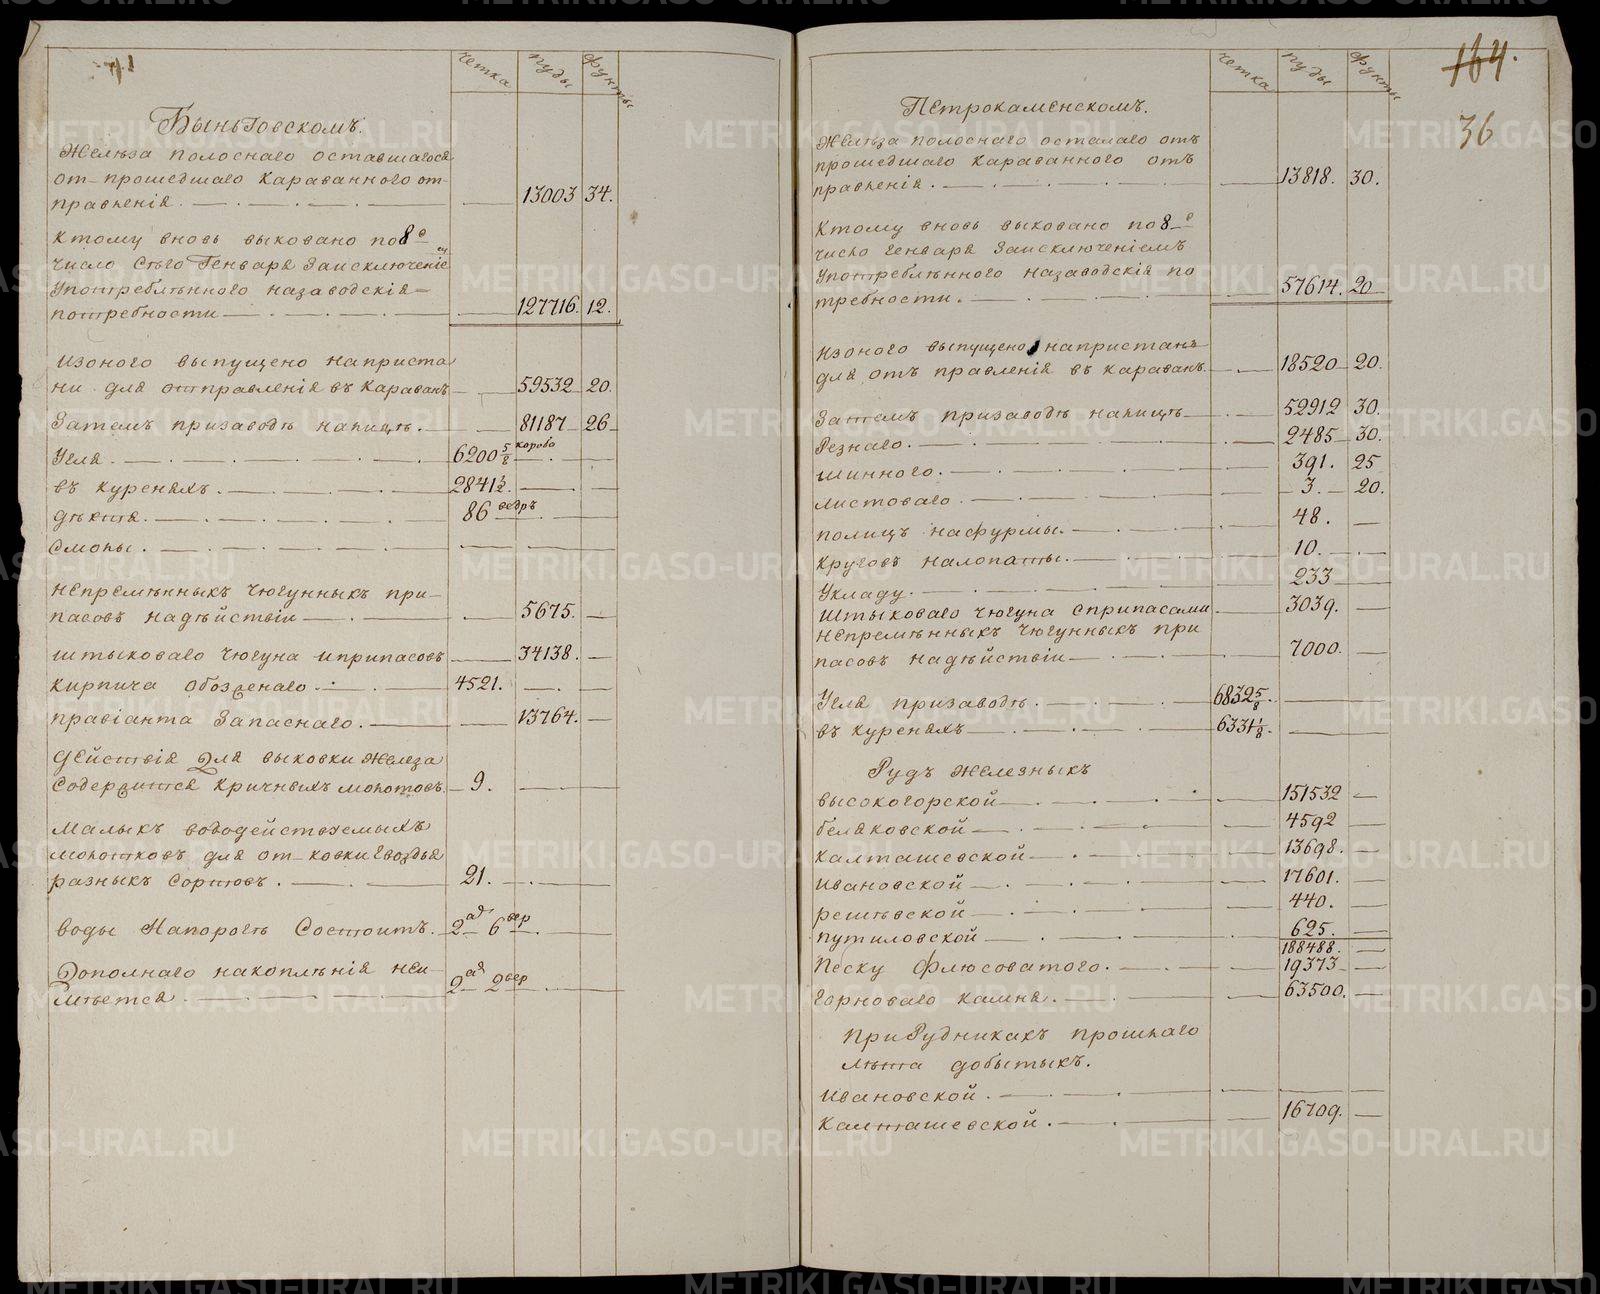 четка пуды фунты
Быньговскомъ.
Желѣза полоснаго оставшагося
от прошедшаго караваннаго от
правленія. 13003 34.
Ктому вновь выковано по 8е
число сего Генваря заисключеніемъ
Употребленнаго назаводскія
потребности 127716. 12.
изоного выпущено напристо
ни для отправленія въ караванъ 59532 20.
Затемъ призаводѣ налицъ. 81187 26
Угля. 6200 5/8 короба
въ куреняхъ. 2841 1/2.
дѣхтя. 86 ведръ
Смолы.
непремѣнныхъ чюгунныхъ при
пасовъ надѣйствіи 5675.
штыковаго чюгуна иприпасовъ 34138.
кирпича обозженаго. 4521.
правіанта запаснаго. 13764.
дѣйствія для выковки железа
содержится кричныхъ молотовъ. 9.
малыхъ вододействуемыхъ
молотковъ для от ковки гвоздья
разныхъ сортовъ. 21.
воды напорость состоитъ. 2 ар 6 вер.
Дополнаго накоплѣнія неи
мѣется. 2 ар 2 вер
четка пуды фунты
164.
36
Петрокаменскомъ.
Желѣза полоснаго осталаго отъ
прошедшаго караванного отъ
правленія. 13818. 30.
Ктому вновь выковано по 8е
число генваря заисключеніемъ
Употребленнаго назаводскія по
требности. 57614. 20
изоного выпущено напристань
для отъ правленія въ караванъ. 18520 20.
Затемъ призаводѣ налицъ 52912 30.
Резнаго. 2485 30.
шинного. 391. 25
листоваго 3. 20.
полицъ нафурмы. 48.
круговъ налопаты. 10.
Укладу. 233
штыковаго чюгуна сприпасами 3039.
непремѣнныхъ чюгунныхъ при
пасовъ надѣйствіи 7000.
Угля призаводѣ. 6832 5/8.
въ куреняхъ 6331 1/8.
Рудъ железныхъ
высокогорской 151532
беляковской 4592
калташевской 13698.
ивановской 17601.
решѣвской 440.
путиловской 625.
188488.
Песку флюсоватого. 19373
горноваго камня. 63500.
При Рудникахъ прошлаго
лѣта добытыхъ.
ивановской.
калташевской. 16709.
METRIKI.GASO-URAL.RU